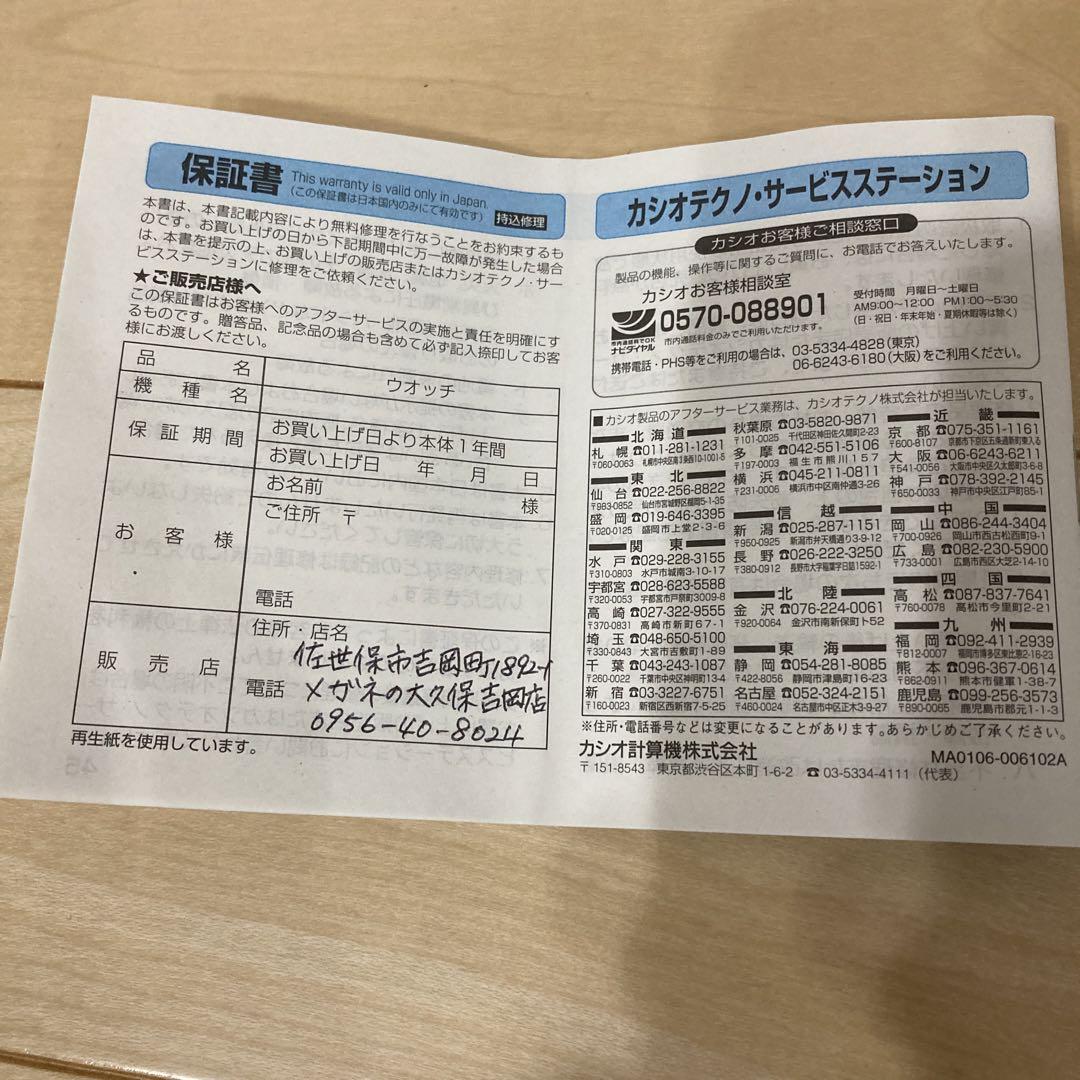 保証書
This warranty is valid only in Japan.
(この保証書は日本国内のみにて有効です)
持込修理
本書は、本書記載内容により無料修理を行なうことをお約束するも
のです。お買い上げの日から下記期間中に万一故障が発生した場合
は、本書を提示の上、お買い上げの販売店またはカシオテクノ・サー
ビスステーションに修理をご依頼ください。
★ご販売店様へ
この保証書はお客様へのアフターサービスの実施と責任を明確にす
るものです。贈答品、記念品の場合も含めて必ず記入捺印してお客
様にお渡しください。
品名 ウオッチ
機種名
保証期間 お買い上げ日より本体1年間
お買い上げ日 年 月 日
お客様 お名前 様
ご住所 〒
電話
販売店 住所・店名
佐世保市吉岡町1892-1
電話 メガネの大久保吉岡店
0956-40-8024
再生紙を使用しています。
カシオテクノ・サービスステーション
カシオお客様ご相談窓口
製品の機能、操作等に関するご質問に、お電話でお答えいたします。
カシオお客様相談室
市内通話料金でOK
ナビダイヤル
0570-088901
市内通話料金のみでご利用いただけます。
受付時間 月曜日〜土曜日
AM9:00〜12:00 PM1:00〜5:30
(日・祝日・年末年始・夏期休暇等は除く)
携帯電話・PHS等をご利用の場合は、03-5334-4828(東京)
06-6243-6180(大阪)をご利用ください。
■カシオ製品のアフターサービス業務は、カシオテクノ株式会社が担当いたします。
北海道
札幌☎011-281-1231
〒060-0063
東北
仙台☎022-256-8822
〒983-0852 仙台市宮城野区榴岡5-1-35
盛岡☎019-646-3395
〒020-0125 盛岡市上堂2-3-6
関東
水戸☎029-228-3155
〒310-0803 水戸市城南3-10-17
宇都宮☎028-623-5588
〒320-0053 宇都宮市戸祭町3009-8
高崎☎027-322-9555
〒370-0831 高崎市新町67-1
埼玉☎048-650-5100
〒330-0843 大宮市吉敷町1-89
千葉☎043-243-1087
〒260-0022 千葉市中央区神明町13-4
新宿☎03-3227-6751
〒160-0023 新宿区西新宿7-5-25
秋葉原☎03-5820-9871
〒101-0025 千代田区神田佐久間町2-23
多摩☎042-551-5106
〒197-0003 福生市熊川157
横浜☎045-211-0811
〒231-0006 横浜市中区南仲通3-26
信越
新潟☎025-287-1151
〒950-0925 新潟市弁天橋通り3-9-12
長野☎026-222-3250
〒380-0912 長野市大字稲葉字日詰1592-1
北陸
金沢☎076-224-0061
〒920-0064 金沢市南新保町ト52
東海
静岡☎054-281-8085
〒422-8056 静岡市津島町16-23
名古屋☎052-324-2151
〒460-0024 名古屋市中区正木3-9-27
近畿
京都☎075-351-1161
〒600-8107 京都市下京区五条通新町東入る
大阪☎06-6243-6211
〒541-0056 大阪市中央区久太郎町3-6-8
神戸☎078-392-2145
〒650-0033 神戸市中央区江戸町85-1
中国
岡山☎086-244-3404
〒700-0926 岡山市西古松西町9-1
広島☎082-230-5900
〒733-0001 広島市西区大芝2-14-10
四国
高松☎087-837-7641
〒760-0078 高松市今里町2-21
九州
福岡☎092-411-2939
〒812-0007 福岡市博多区東比恵2-16-23
熊本☎096-367-0614
〒862-0911 熊本市健軍1-38-7
鹿児島☎099-256-3573
〒890-0065 鹿児島市郡元1-1-3
※住所・電話番号などは変更になることがあります。あらかじめご了承ください。
カシオ計算機株式会社
MA0106-006102A
〒151-8543 東京都渋谷区本町1-6-2 ☎03-5334-4111(代表)